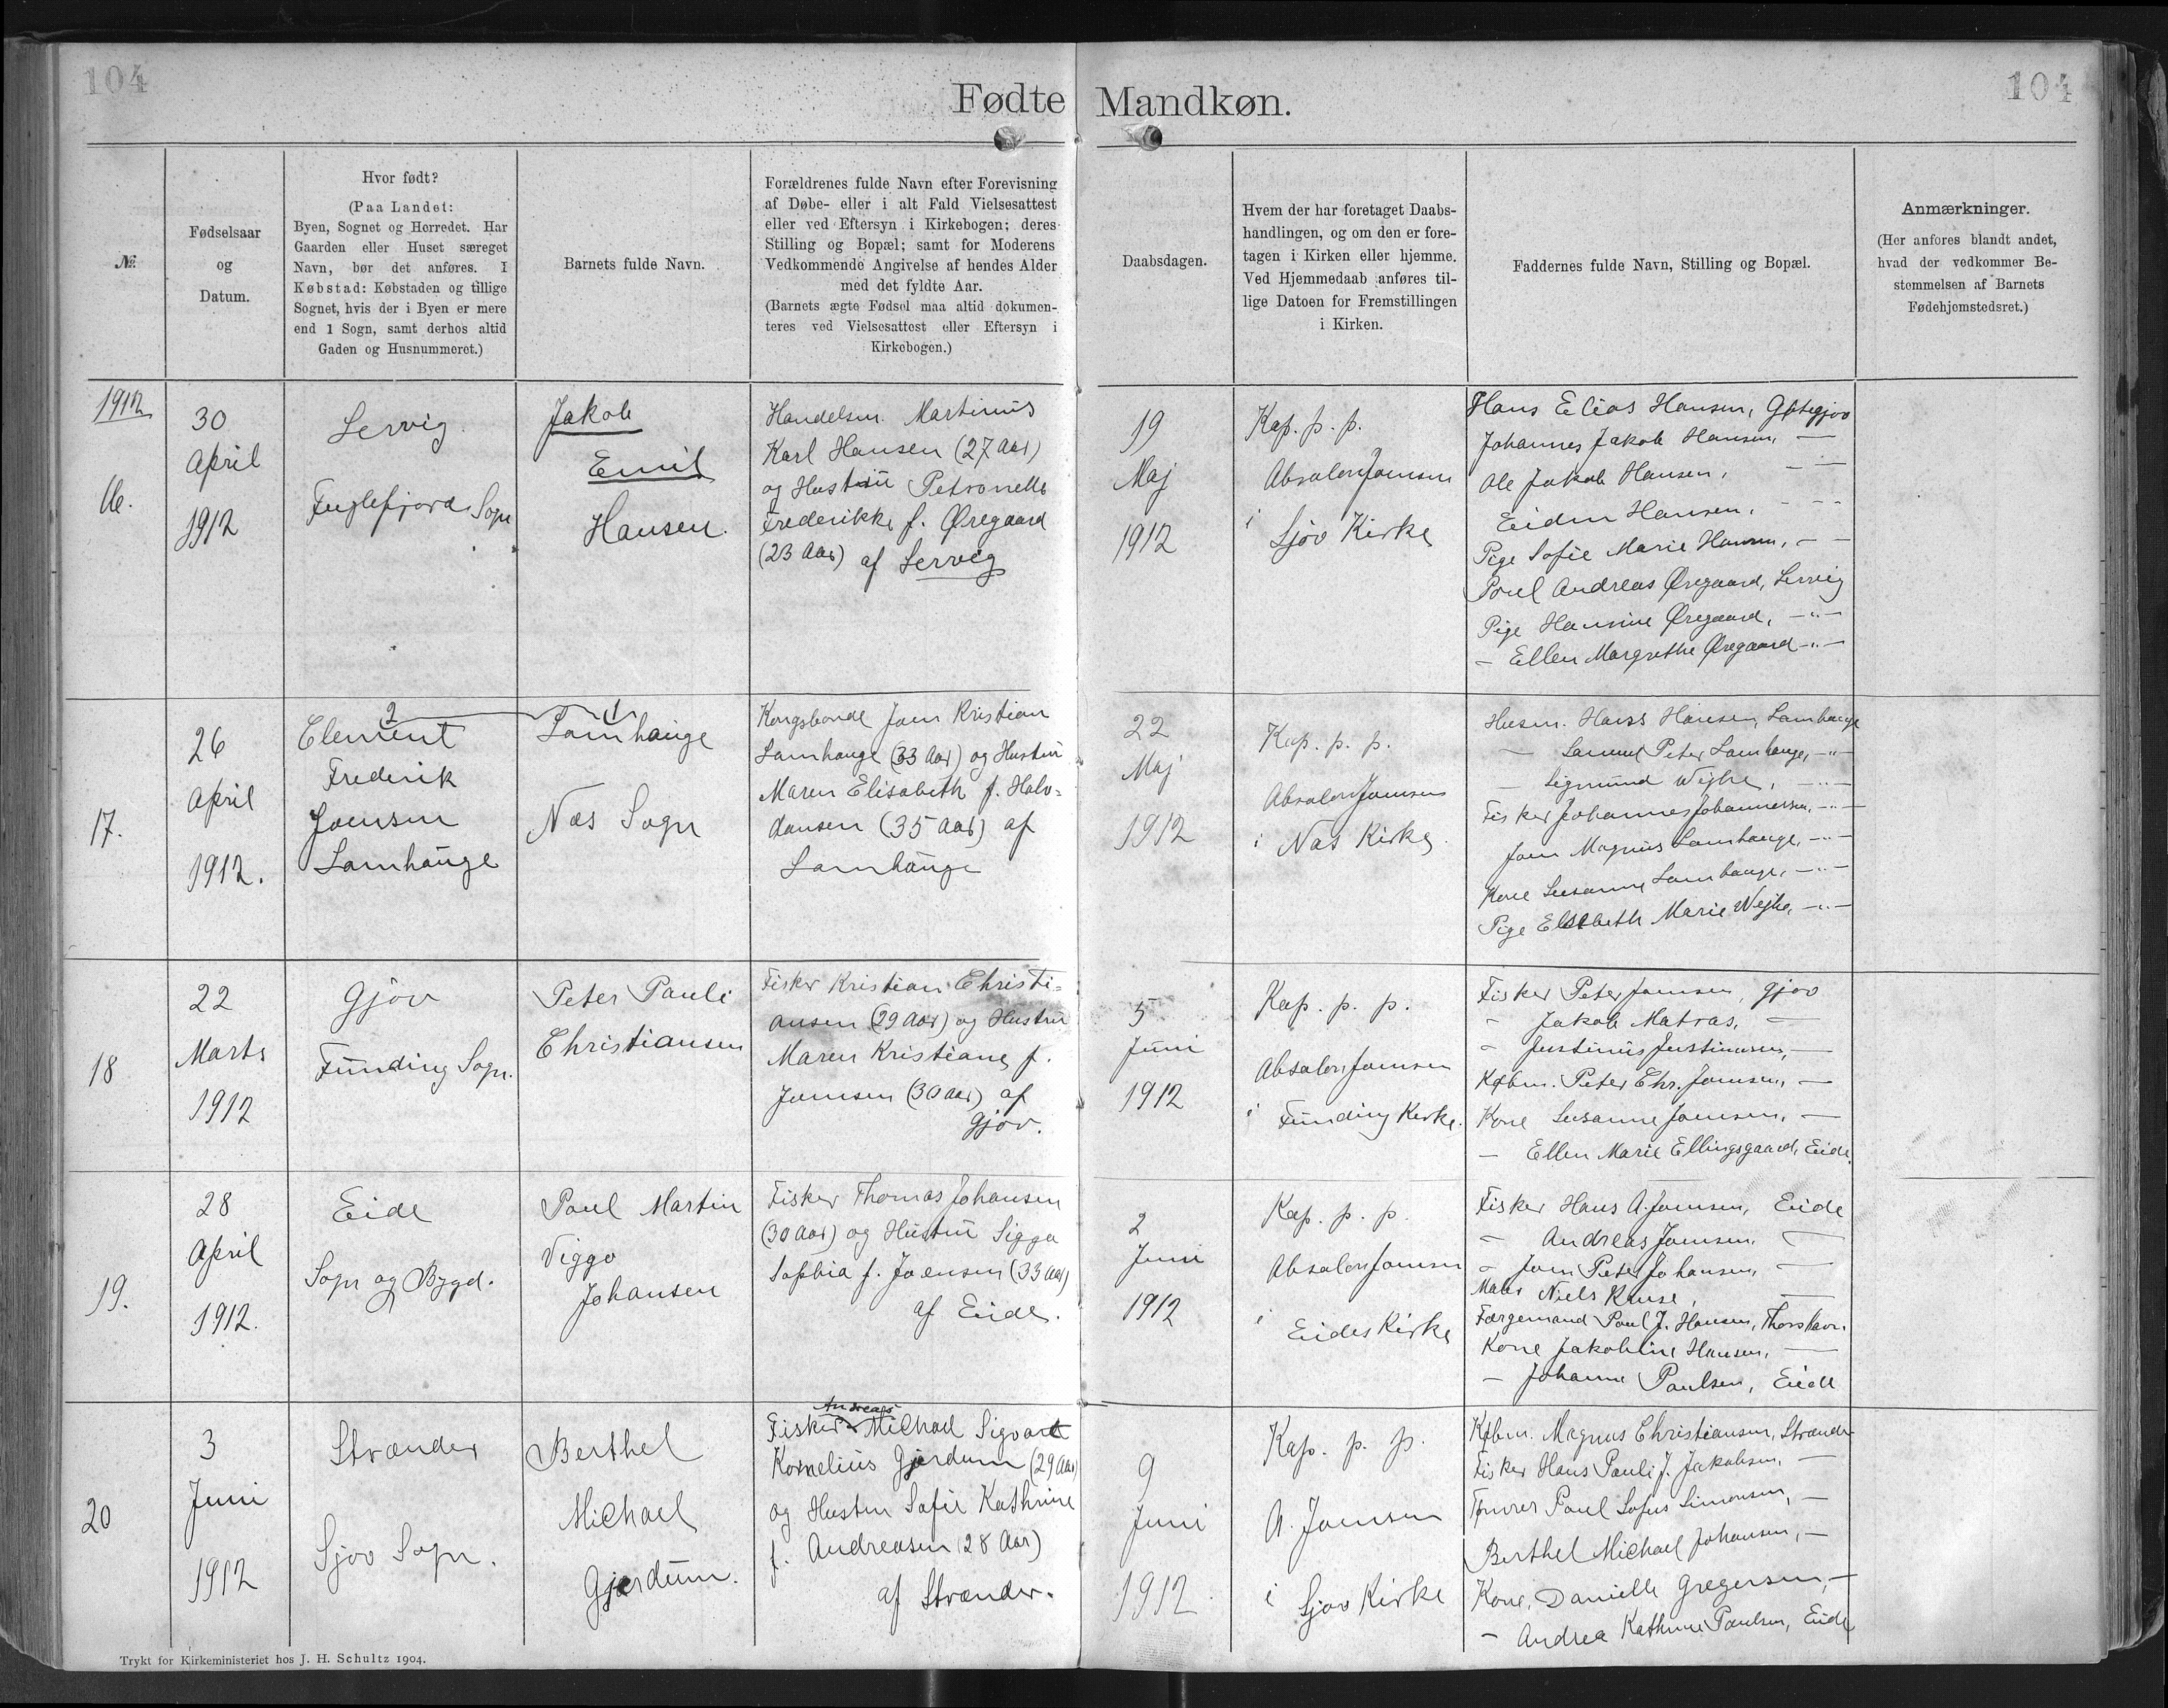 104
104
Fødte Mandkøn.
№
Fødselsaar
og
Datum.
Hvor født?
(Paa Landet:
Byen, Sognet og Herredet. Har
Gaarden eller Huset særeget
Navn, bør det anføres. I
Købstad: Købstaden og tillige
Sognet, hvis der i Byen er mere
end 1 Sogn, samt derhos altid
Gaden og Husnummeret.)
Barnets fulde Navn.
Forældrenes fulde Navn efter Forevisning
af Døbe- eller i alt Fald Vielsesattest
eller ved Eftersyn i Kirkebogen; deres
Stilling og Bopæl; samt for Moderens
Vedkommende Angivelse af hendes Alder
med det fyldte Aar.
(Barnets ægte Fødsel maa altid dokumen-
teres ved Vielsesattest eller Eftersyn i
Kirkebogen.)
Daabsdagen.
Hvem der har foretaget Daabs-
handlingen, og om den er fore-
tagen i Kirken eller hjemme.
Ved Hjemmedaab anføres til-
lige Datoen for Fremstillingen
i Kirken.
Faddernes fulde Navn, Stilling og Bopæl.
Anmærkninger.
(Her anføres blandt andet,
hvad der vedkommer Be-
stemmelsen af Barnets
Fødehjemstedsret.)
1912
16.
30
April
1912
Lervig
Fuglefjord Sogn
Jakob
Emil
Hansen.
Handelsm. Martinus
Karl Hansen (27 Aar)
og Hustrü Petronelle
Frederikke f. Øregaard
(23 Aar) af Lervig
19
Maj
1912
Kap. p. p.
Absalon Joensen
i Sjov Kirke
Hans Elias Hansen, Gøtegjov
Johannes Jakob Hansen, —
Ole Jakob Hansen, — —
Hansen, - - -
Pige Sofie Marie Hansen, - —
Poul Andreas Øregaard, Lervig
Pige Hansine Øregaard, —"—
— Ellen Margrethe Øregaard —"—
17.
26
April
1912.
2
Clement
Frederik
Joensen
Lamhaüge
1
Lamhauge
Næs Sogn
Kongsbonde Joen Kristian
Lamhauge (33 Aar) og Hustrü
Maren Elisabeth f. Halv=
dansen (35 Aar) af
Lamhaüge
22
Maj
1912
Kap. p. p.
Absalon Joensen
i Næs Kirke
Husm. Hans Hansen, Lamhauge
— Samuel Peter Lamhauge, —"—
— Sigmund Wejhe, —"—
Fisker Johannes Johannessen, —"—
Joen Magnus Lamhauge, —"—
Kone Susanne Lamhauge, —"—
Pige Elsebeth Marie Wejhe, —"—
18
22
Marts
1912
Gjov
Fünding Sogn.
Peter Pauli
Christiansen
Fisker Kristian Christi=
ansen (29 Aar) og Hustru
Maren Kristiane f.
Joensen (30 Aar) af
Gjov.
5
Jüni
1912
Kap. p. p.
Absalon Joensen
i Fünding Kirke.
Fisker Peter Joensen, Gjov
- Jakob Matras, —
- Justinus Justinussen, —
Købm. Peter Chr. Joensen, —
Kone Susanne Joensen, —
— Ellen Marie Ellingsgaard, Eide.
19.
28
April
1912.
Eide
Sogn og Bygd.
Poul Martin
Viggo
Johansen
Fisker Thomas Johansen
(30 Aar) og Hustrü Sigga
Sophia f. Joensen (33 Aar)
af Eide.
2
Juni
1912
Kap. p. p.
Absalon Joensen
i Eides Kirke
Fisker Hans A. Joensen, Eide
- Andreas Joensen, —
- Joen Peter Johansen, —
Maler Niels Kruse, —
Færgemand Poul J. Hansen, Thorshavn.
Kone Jakobine Hansen, —
— Johanne Poulsen, Eide
20
3
Juni
1912
Strænder
Sjov Sogn.
Berthel
Michael
Gjærdum.
Andreas
Fisker Michael Sigvart
Kornelius Gjærdum (29 Aar)
og Hustru Sofie Kathrine
f. Andreasen (28 Aar)
af Strænder.
9
Juni
1912
Kap. p. p.
A. Joensen
i Sjov Kirke
Købm. Magnus Christiansen, Strænder
Fisker Hans Pauli J. Jakobsen, —
Tømrer Poul Sofus Simonsen, —
Berthel Michael Johansen, —
Kone, Danielle Gregersen, —
— Andrea Kathrine Poulsen, Eide
Trykt for Kirkeministeriet hos J. H. Schultz 1904.